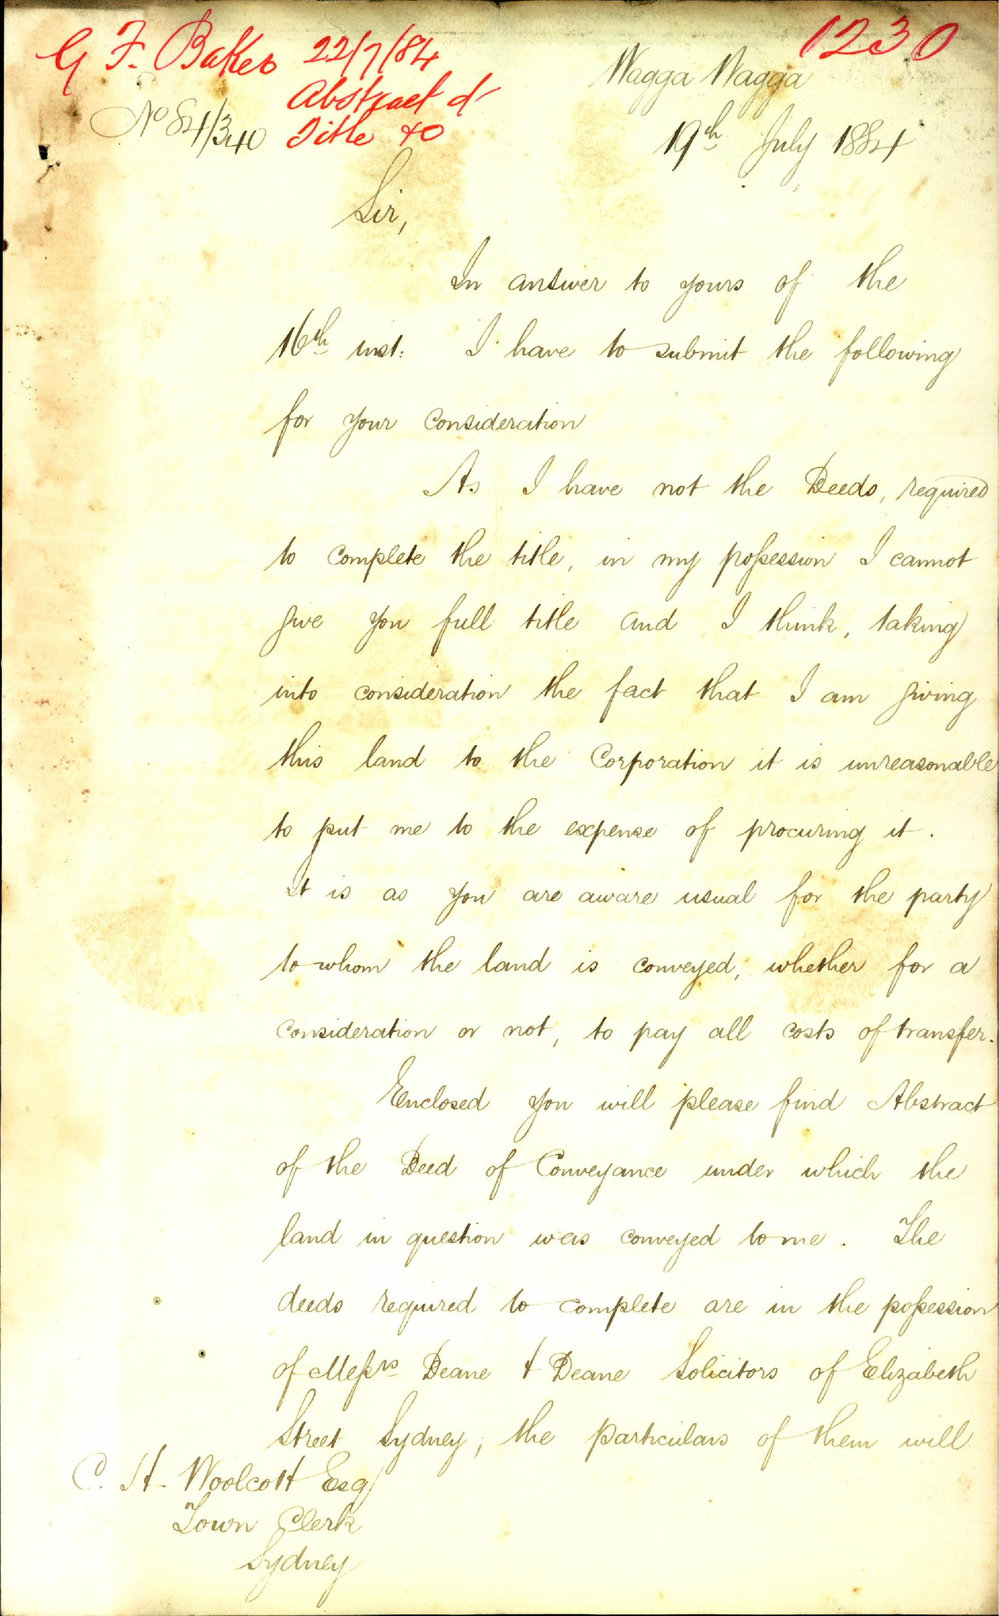 1230
G F. Baker 22/7/84
Abstract of
Title &c
No 84/340
Wagga Wagga
19th July 1884
Sir,
In answer to yours of the
16th inst: I have to submit the following
for your consideration
As I have not the Deeds, required
to complete the title, in my possession I cannot
give you full title and I think, taking
into consideration the fact that I am giving
this land to the Corporation it is unreasonable
to put me to the expense of procuring it.
It is as you are aware usual for the party
to whom the land is conveyed, whether for a
consideration or not, to pay all costs of transfer.
Enclosed you will please find Abstract
of the Deed of Conveyance under which the
land in question was conveyed to me. The
deeds required to complete are in the possession
of Messrs Deane & Deane Solicitors of Elizabeth
Street Sydney, the particulars of them will
C. H. Woolcott Esq
Town Clerk
Sydney